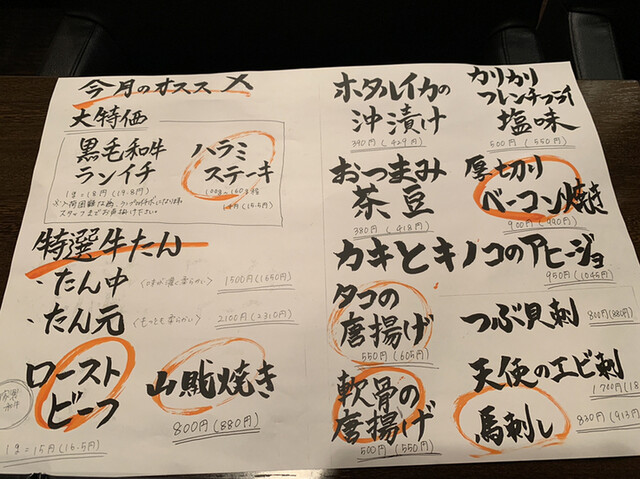 今月のオススメ
大特価
黒毛和牛
ランイチ
1g=18円(19.8円)
スタッフまでお声掛け下さい
ハラミ
ステーキ
特選牛たん
・たん中
1500円(1650円)
・たん元
〈もっとも柔らかい〉
2100円(2310円)
ロースト
ビーフ
1g=15円(16.5円)
山賊焼き
800円(880円)
ホタルイカの
沖漬け
390円(429円)
カリカリ
フレンチフライ
塩味
500円(550円)
おつまみ
茶豆
380円(418円)
厚切り
ベーコン焼き
900円(990円)
カキとキノコのアヒージョ
950円(1045円)
タコの
唐揚げ
550円(605円)
つぶ貝刺
800円(880円)
軟骨の
唐揚げ
500円(550円)
天使のエビ刺
1700円(18
馬刺し
830円(913円)